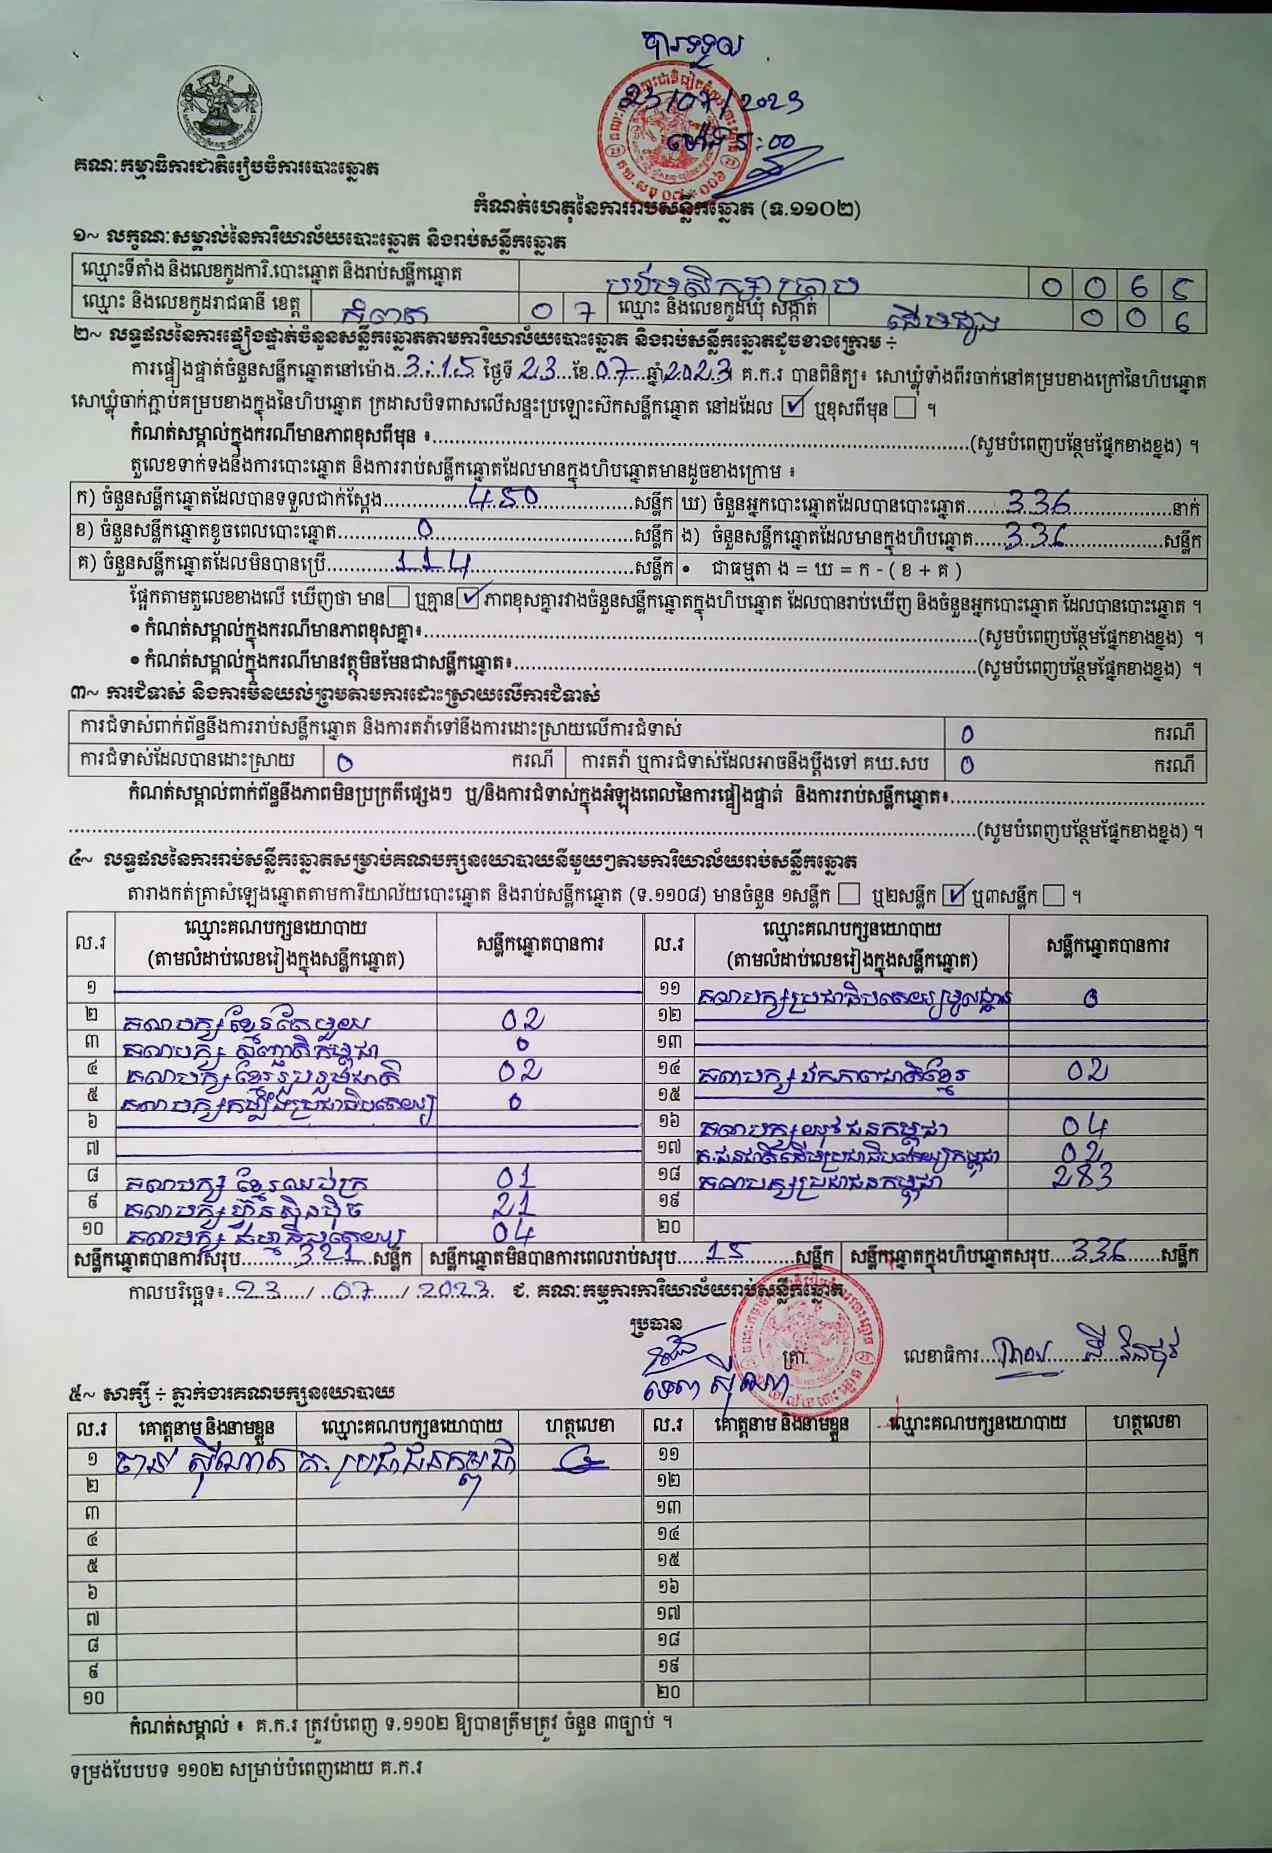 បានទទួល
23/07/2023
គណៈកម្មាធិការជាតិរៀបចំការបោះឆ្នោត
កំណត់ហេតុនៃការរាប់សន្លឹកឆ្នោត (ទ.១១០២)
១~ លក្ខណៈសម្គាល់នៃការិយាល័យបោះឆ្នោត និងរាប់សន្លឹកឆ្នោត
ឈ្មោះទីតាំង និងលេខកូដការិ.បោះឆ្នោត និងរាប់សន្លឹកឆ្នោត 0 0 6 5
ឈ្មោះ និងលេខកូដរាជធានី ខេត្ត កំពត 0 7 ឈ្មោះ និងលេខកូដឃុំ សង្កាត់ ដើមដូង 0 0 6
២~ លទ្ធផលនៃការផ្ទៀងផ្ទាត់ចំនួនសន្លឹកឆ្នោតតាមការិយាល័យបោះឆ្នោត និងរាប់សន្លឹកឆ្នោតដូចខាងក្រោម ÷
ការផ្ទៀងផ្ទាត់ចំនួនសន្លឹកឆ្នោតនៅម៉ោង 3:15 ថ្ងៃទី 23 ខែ 07 ឆ្នាំ 2023 គ.ក.រ បានពិនិត្យ៖ សោឃ្លុំទាំងពីរចាក់នៅគម្របខាងក្រៅនៃហិបឆ្នោត
សោឃ្លុំចាក់ភ្ជាប់គម្របខាងក្នុងនៃហិបឆ្នោត ក្រដាសបិទពាសលើសន្ទះប្រឡោះស៊កសន្លឹកឆ្នោត នៅដដែល ☑ ឬខុសពីមុន ☐ ។
កំណត់សម្គាល់ក្នុងករណីមានភាពខុសពីមុន ៖ (សូមបំពេញបន្ថែមផ្នែកខាងខ្នង) ។
តួលេខទាក់ទងនឹងការបោះឆ្នោត និងការរាប់សន្លឹកឆ្នោតដែលមានក្នុងហិបឆ្នោតមានដូចខាងក្រោម ៖
ក) ចំនួនសន្លឹកឆ្នោតដែលបានទទួលជាក់ស្តែង 450 សន្លឹក ឃ) ចំនួនអ្នកបោះឆ្នោតដែលបានបោះឆ្នោត 336 នាក់
ខ) ចំនួនសន្លឹកឆ្នោតខូចពេលបោះឆ្នោត 0 សន្លឹក ង) ចំនួនសន្លឹកឆ្នោតដែលមានក្នុងហិបឆ្នោត 336 សន្លឹក
គ) ចំនួនសន្លឹកឆ្នោតដែលមិនបានប្រើ 114 សន្លឹក • ជាធម្មតា ង = ឃ = ក - ( ខ + គ )
ផ្អែកតាមតួលេខខាងលើ ឃើញថា មាន ☐ ឬគ្មាន ☑ ភាពខុសគ្នារវាងចំនួនសន្លឹកឆ្នោតក្នុងហិបឆ្នោត ដែលបានរាប់ឃើញ និងចំនួនអ្នកបោះឆ្នោត ដែលបានបោះឆ្នោត ។
• កំណត់សម្គាល់ក្នុងករណីមានភាពខុសគ្នា៖ (សូមបំពេញបន្ថែមផ្នែកខាងខ្នង) ។
• កំណត់សម្គាល់ក្នុងករណីមានវត្ថុមិនមែនជាសន្លឹកឆ្នោត៖ (សូមបំពេញបន្ថែមផ្នែកខាងខ្នង) ។
៣~ ការជំទាស់ និងការមិនយល់ព្រមតាមការដោះស្រាយលើការជំទាស់
ការជំទាស់ពាក់ព័ន្ធនឹងការរាប់សន្លឹកឆ្នោត និងការតវ៉ាទៅនឹងការដោះស្រាយលើការជំទាស់ 0 ករណី
ការជំទាស់ដែលបានដោះស្រាយ 0 ករណី ការតវ៉ា ឬការជំទាស់ដែលអាចនឹងប្តឹងទៅ គឃ.សប 0 ករណី
កំណត់សម្គាល់ពាក់ព័ន្ធនឹងភាពមិនប្រក្រតីផ្សេងៗ ឬ/និងការជំទាស់ក្នុងអំឡុងពេលនៃការផ្ទៀងផ្ទាត់ និងការរាប់សន្លឹកឆ្នោត៖
(សូមបំពេញបន្ថែមផ្នែកខាងខ្នង) ។
៤~ លទ្ធផលនៃការរាប់សន្លឹកឆ្នោតសម្រាប់គណបក្សនយោបាយនីមួយៗតាមការិយាល័យរាប់សន្លឹកឆ្នោត
តារាងកត់ត្រាសំឡេងឆ្នោតតាមការិយាល័យបោះឆ្នោត និងរាប់សន្លឹកឆ្នោត (ទ.១១០៨) មានចំនួន ១សន្លឹក ☐ ឬ២សន្លឹក ☑ ឬ៣សន្លឹក ☐ ។
ល.រ ឈ្មោះគណបក្សនយោបាយ (តាមលំដាប់លេខរៀងក្នុងសន្លឹកឆ្នោត) សន្លឹកឆ្នោតបានការ ល.រ ឈ្មោះគណបក្សនយោបាយ (តាមលំដាប់លេខរៀងក្នុងសន្លឹកឆ្នោត) សន្លឹកឆ្នោតបានការ
១ ១១ គណបក្សប្រជាធិបតេយ្យមូលដ្ឋាន 0
២ គណបក្សខ្មែរតែមួយ 02 ១២
៣ គណបក្ស សញ្ជាតិកម្ពុជា 0 ១៣
៤ គណបក្សខ្មែររួបរួមជាតិ 02 ១៤ គណបក្សឯកភាពជាតិខ្មែរ 02
៥ គណបក្សកម្លាំងប្រជាធិបតេយ្យ 0 ១៥
៦ ១៦ គណបក្សយុវជនកម្ពុជា 04
៧ ១៧ គ.ជនជាតិដើមប្រជាធិបតេយ្យកម្ពុជា 02
៨ គណបក្ស ខ្មែរឈប់ក្រ 01 ១៨ គណបក្សប្រជាជនកម្ពុជា 283
៩ គណបក្ស ហ៊្វុនស៊ិនប៉ិច 21 ១៩
១០ គណបក្ស ធម្មាធិបតេយ្យ 04 ២០
សន្លឹកឆ្នោតបានការសរុប 321 សន្លឹក សន្លឹកឆ្នោតមិនបានការពេលរាប់សរុប 15 សន្លឹក សន្លឹកឆ្នោតក្នុងហិបឆ្នោតសរុប 336 សន្លឹក
កាលបរិច្ឆេទ៖ 23 / 07 / 2023 ជ. គណៈកម្មការការិយាល័យរាប់សន្លឹកឆ្នោត
ប្រធាន
ត្រា. លេខាធិការ
៥~ សាក្សី ÷ ភ្នាក់ងារគណបក្សនយោបាយ
ល.រ គោត្តនាម និងនាមខ្លួន ឈ្មោះគណបក្សនយោបាយ ហត្ថលេខា ល.រ គោត្តនាម និងនាមខ្លួន ឈ្មោះគណបក្សនយោបាយ ហត្ថលេខា
១ គ. ប្រជាជនកម្ពុជា ១១
២ ១២
៣ ១៣
៤ ១៤
៥ ១៥
៦ ១៦
៧ ១៧
៨ ១៨
៩ ១៩
១០ ២០
កំណត់សម្គាល់ ៖ គ.ក.រ ត្រូវបំពេញ ទ.១១០២ ឱ្យបានត្រឹមត្រូវ ចំនួន ៣ច្បាប់ ។
ទម្រង់បែបបទ ១១០២ សម្រាប់បំពេញដោយ គ.ក.រ